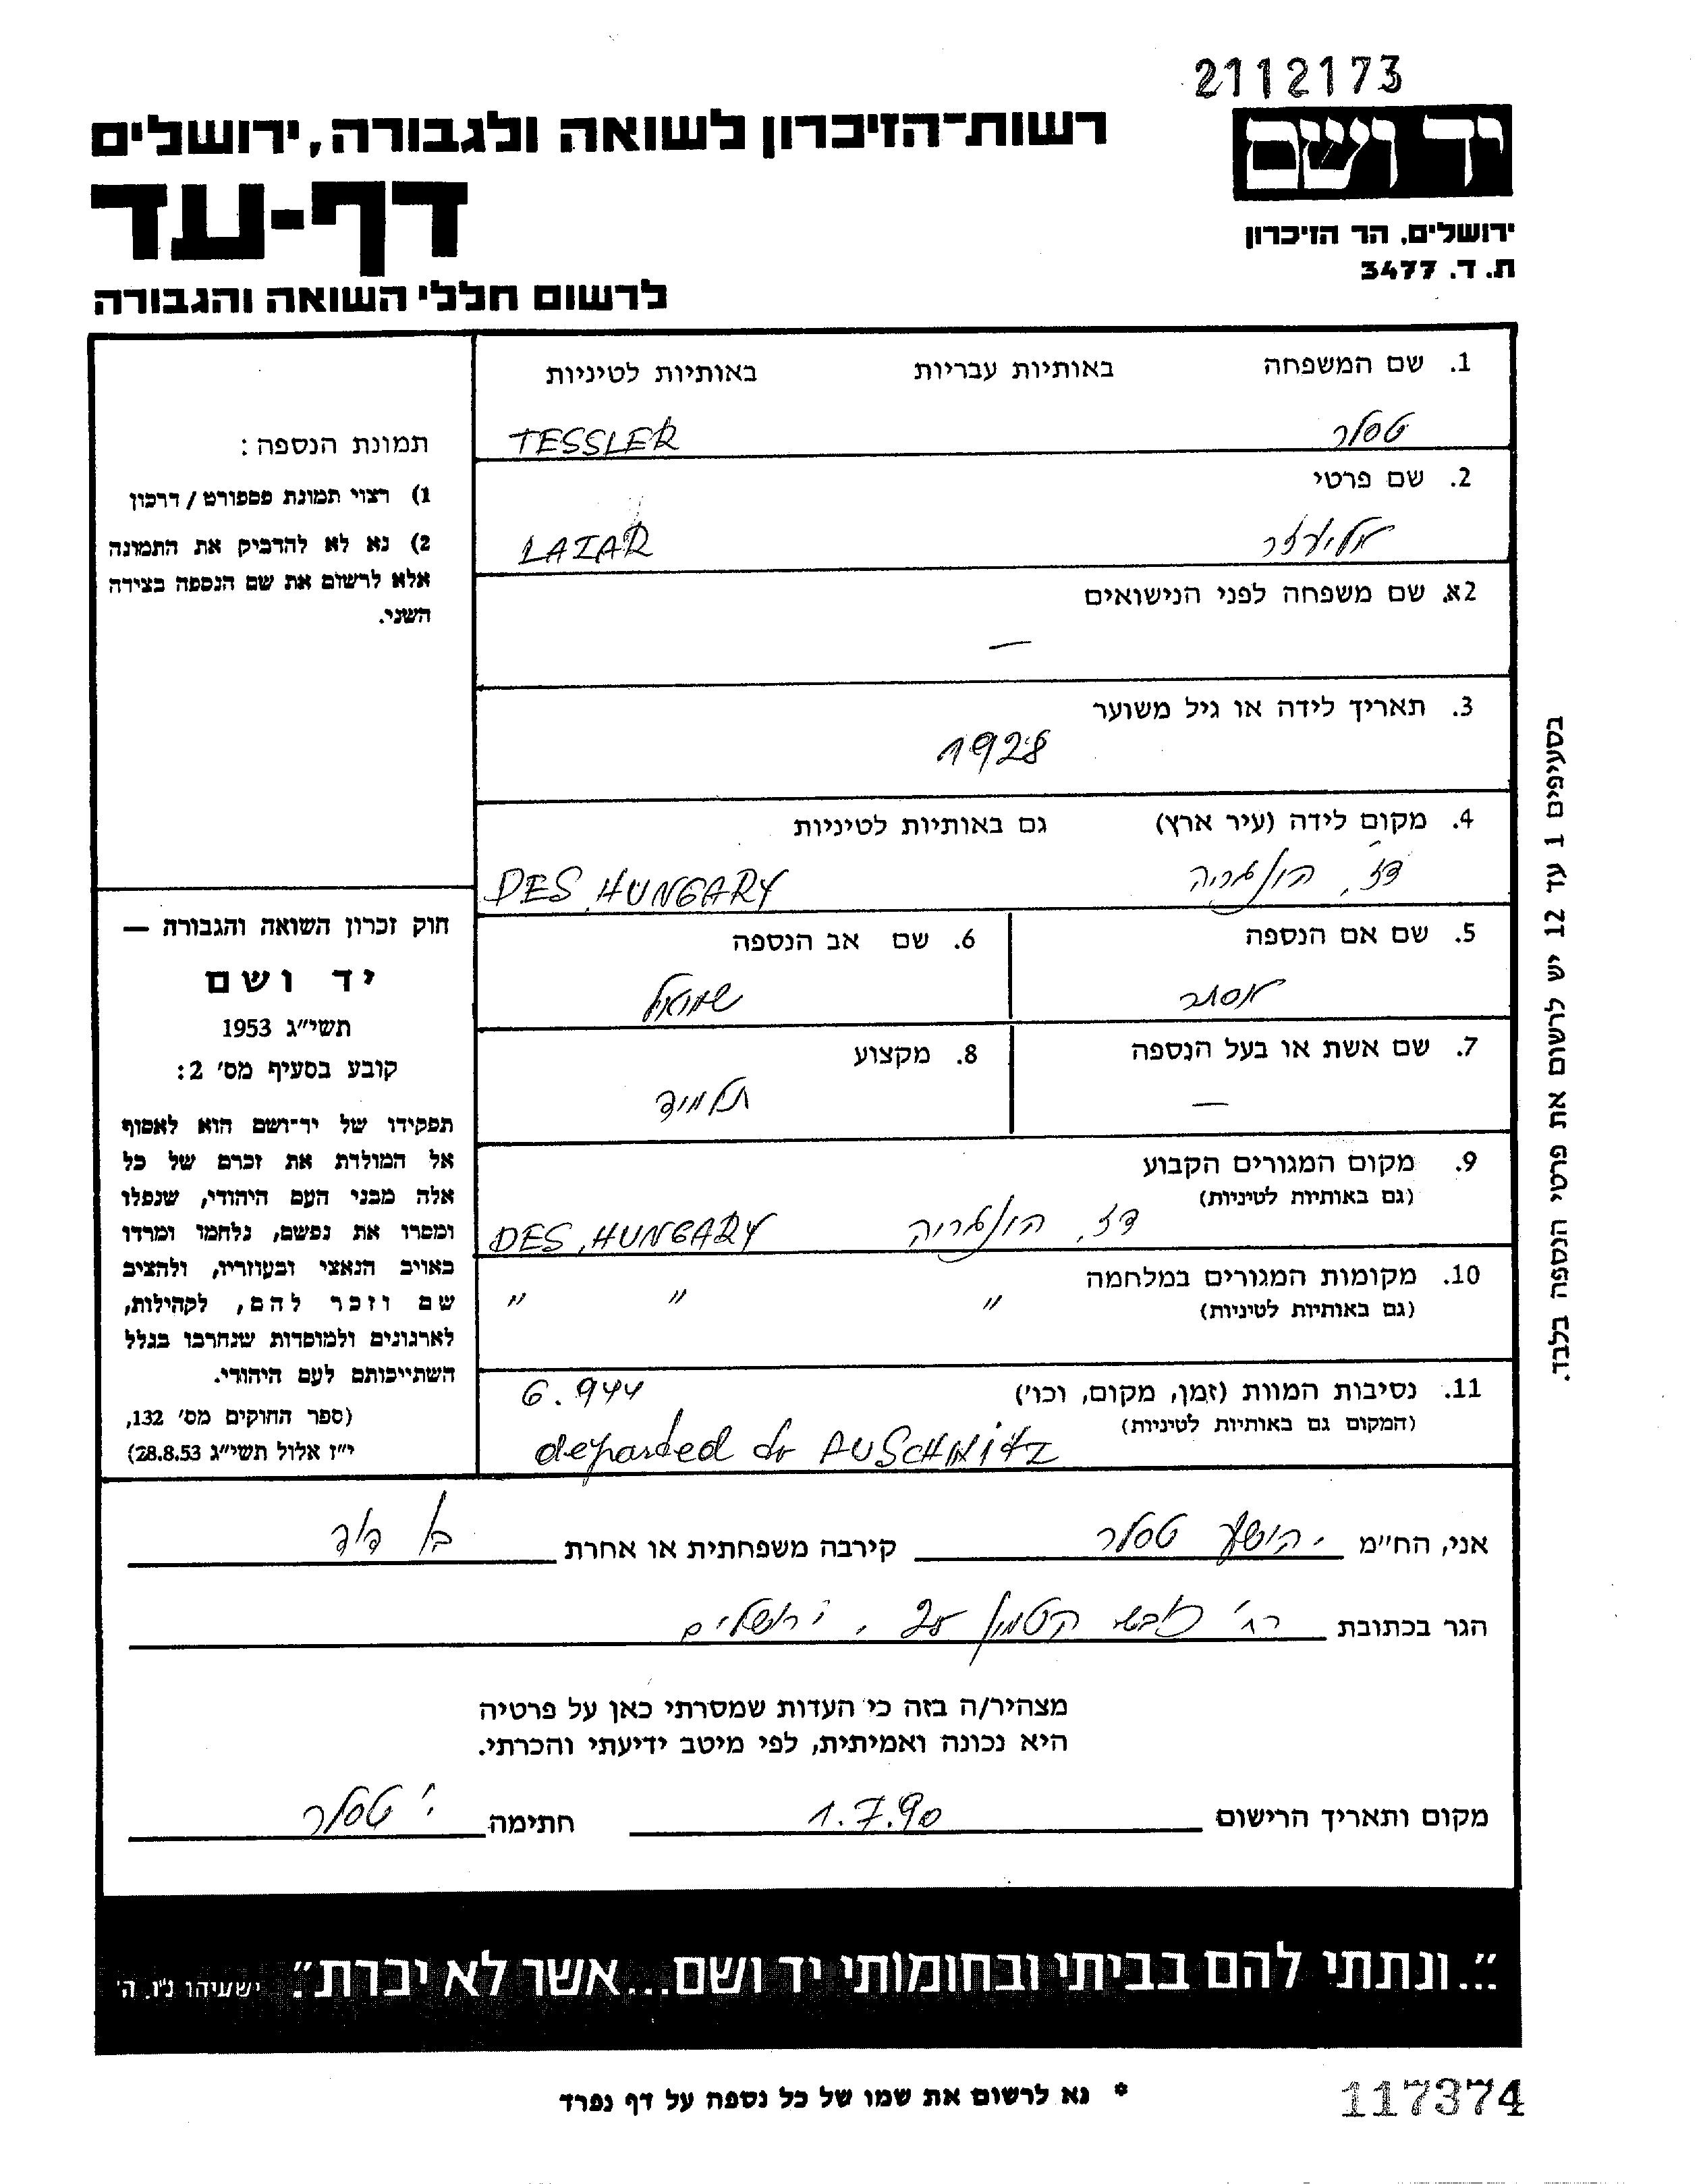 2112173
יד ושם
רשות־הזיכרון לשואה ולגבורה, ירושלים
דף-עד
ירושלים, הר הזיכרון
ת. ד. 3477
לרשום חללי השואה והגבורה
1. שם המשפחה באותיות עבריות באותיות לטיניות
טסלר TESSLER
2. שם פרטי
אליעזר LAZAR
2א. שם משפחה לפני הנישואים
—
3. תאריך לידה או גיל משוער
1928
4. מקום לידה (עיר ארץ) גם באותיות לטיניות
דז', הונגריה DES, HUNGARY
5. שם אם הנספה 6. שם אב הנספה
אסתר שמואל
7. שם אשת או בעל הנספה 8. מקצוע
— תלמיד
9. מקום המגורים הקבוע
(גם באותיות לטיניות)
דז', הונגריה DES, HUNGARY
10. מקומות המגורים במלחמה
(גם באותיות לטיניות) " " "
11. נסיבות המוות (זמן, מקום, וכו') 6.944
(המקום גם באותיות לטיניות)
departed to AUSCHWITZ
תמונת הנספה:
1) רצוי תמונת פספורט / דרכון
2) נא לא להדביק את התמונה
אלא לרשום את שם הנספה בצידה
השני.
חוק זכרון השואה והגבורה —
יד ושם
תשי"ג 1953
קובע בסעיף מס' 2:
תפקידו של יד־ושם הוא לאסוף
אל המולדת את זכרם של כל
אלה מבני העם היהודי, שנפלו
ומסרו את נפשם, נלחמו ומרדו
באויב הנאצי ובעוזריו, ולהציב
שם וזכר להם, לקהילות,
לארגונים ולמוסדות שנחרבו בגלל
השתייכותם לעם היהודי.
(ספר החוקים מס' 132,
י"ז אלול תשי"ג 28.8.53)
בסעיפים 1 עד 12 יש לרשום את פרטי הנספה בלבד.
אני, הח"מ יהושע טסלר קירבה משפחתית או אחרת בן דוד
הגר בכתובת רח' כובשי קטמון 25, ירושלים
מצהיר/ה בזה כי העדות שמסרתי כאן על פרטיה
היא נכונה ואמיתית, לפי מיטב ידיעתי והכרתי.
מקום ותאריך הרישום 1.7.90 חתימה י' טסלר
"...ונתתי להם בביתי ובחומותי יד ושם...אשר לא יכרת." ישעיהו נ"ו, ה'
* נא לרשום את שמו של כל נספה על דף נפרד
117374